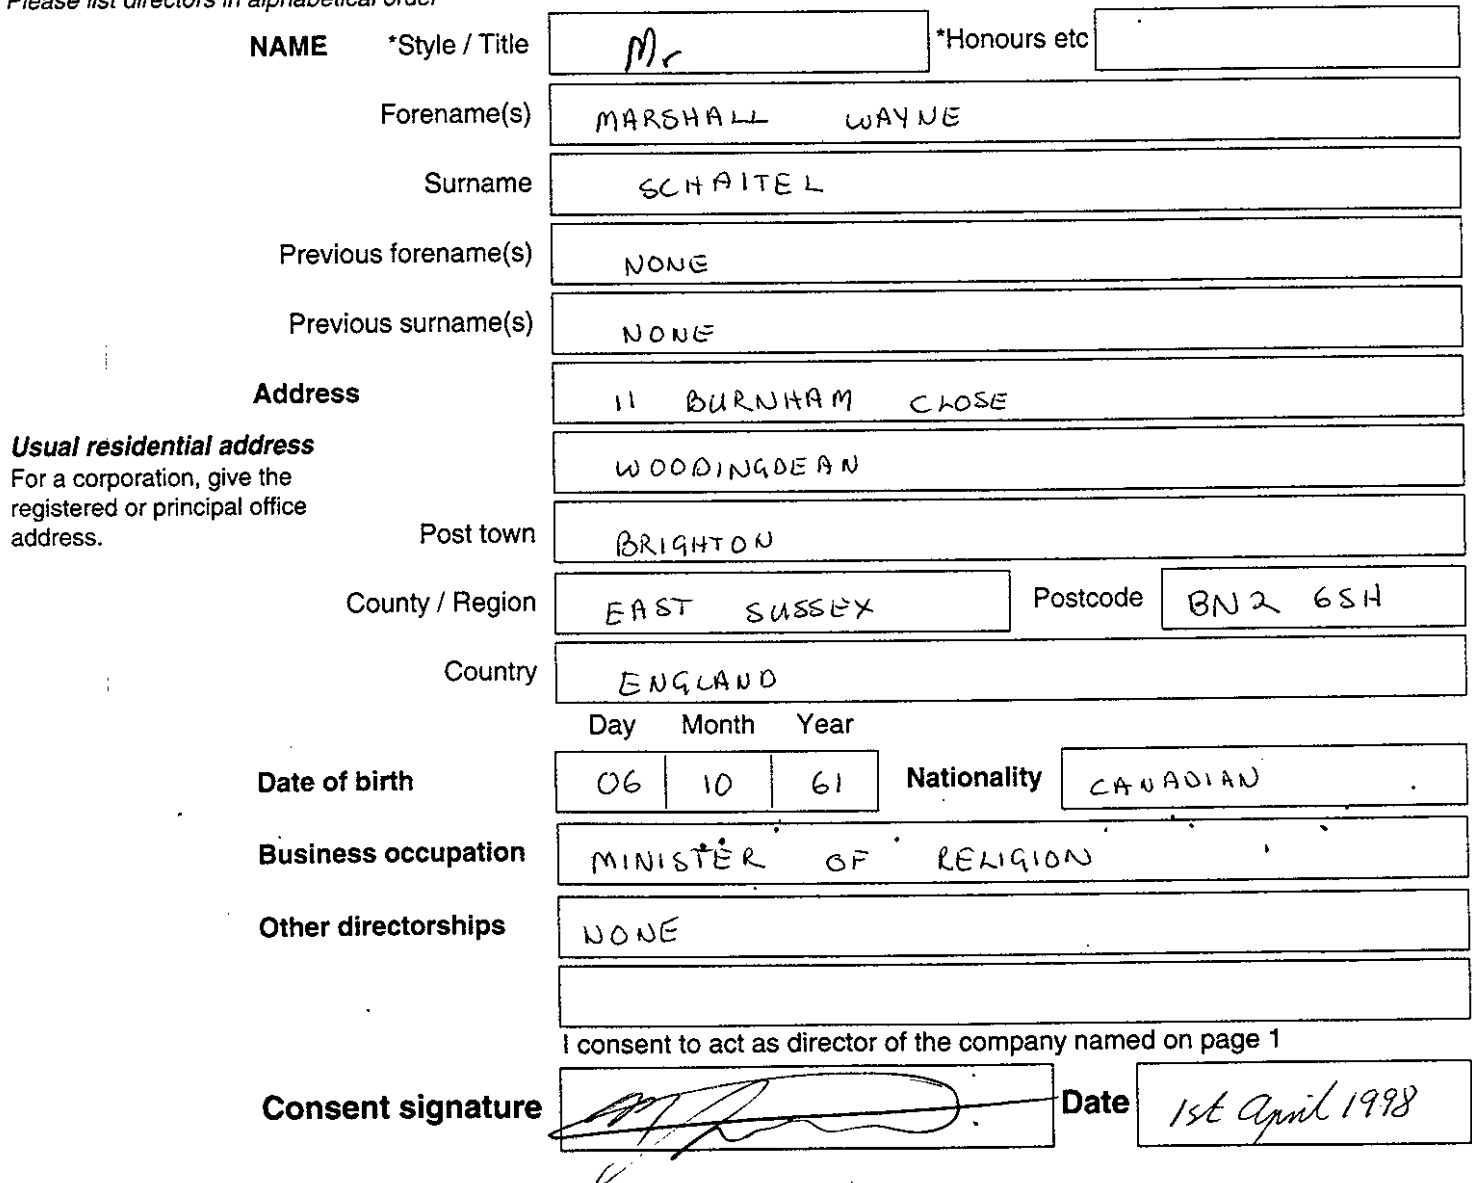 Please list directors in alphabetical order
NAME *Style / Title Mr *Honours etc
Forename(s) MARSHALL WAYNE
Surname SCHAITEL
Previous forename(s) NONE
Previous surname(s) NONE
Address 11 BURNHAM CLOSE
Usual residential address WOODINGDEAN
For a corporation, give the
registered or principal office
address.
Post town BRIGHTON
County / Region EAST SUSSEX Postcode BN2 6SH
Country ENGLAND
Day Month Year
Date of birth 06 10 61 Nationality CANADIAN
Business occupation MINISTER OF RELIGION
Other directorships NONE
I consent to act as director of the company named on page 1
Consent signature Date 1st April 1998